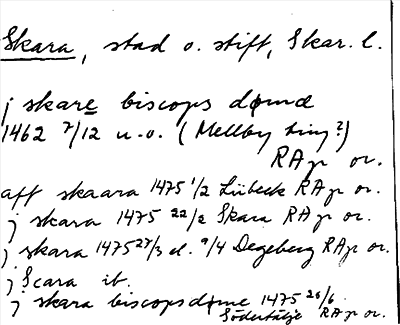 Skara, stad o. stift, Skar. l.
j skare biscops dømе
1462 7/12 u.o. (Mellby ting?)
RAp or.
aff skaara 1475 1/2 Lübeck RAp or.
j skara 1475 22/2 Skara RAp or.
j skara 1475 27/3 el. 9/4 Degeberg RAp or.
j Scara ib.
j skara biscopsdøme 1475 26/6
Södertälje RAp or.